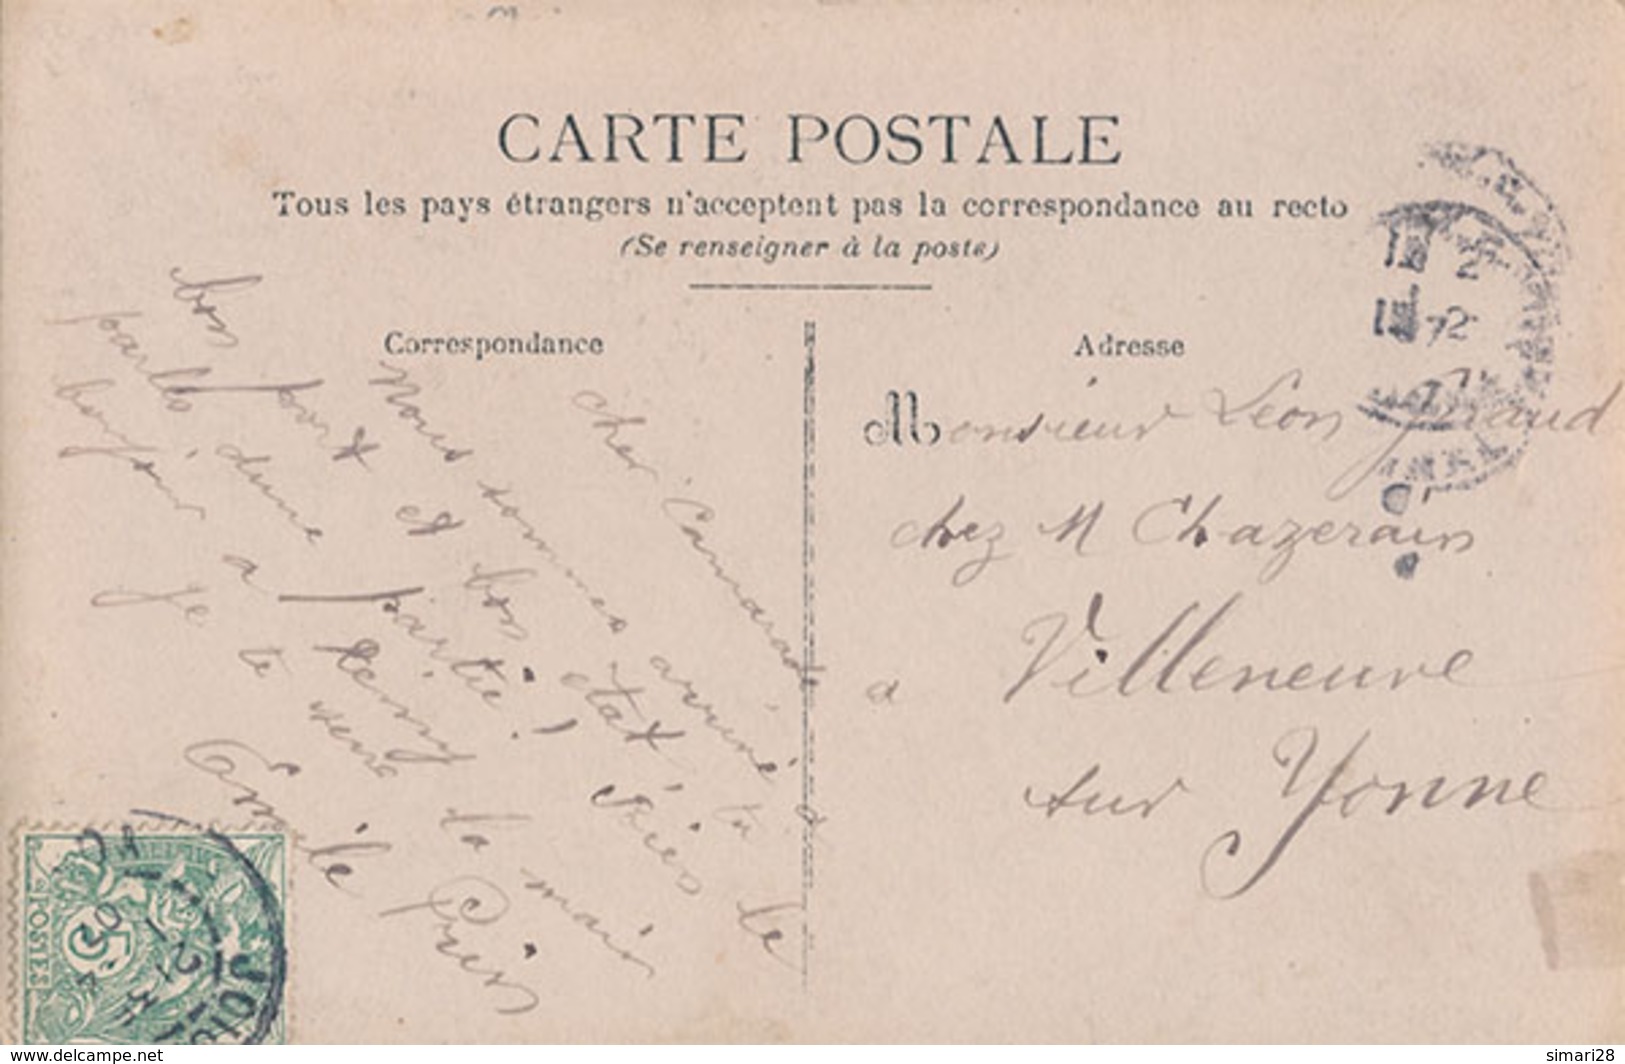 CARTE POSTALE
Tous les pays étrangers n'acceptent pas la correspondance au recto
(Se renseigner à la poste)
Correspondance
Adresse
cher Camarade
Nous sommes arrivé a
bon port et bon état tu
parles d'une partie! très le
bonjour a
je te serre la main
Emile
Monsieur Léon
chez M Chazerain
a Villeneuve
sur Yonne
POSTES
5
JOI
2
72
www.delcampe.net
simari28